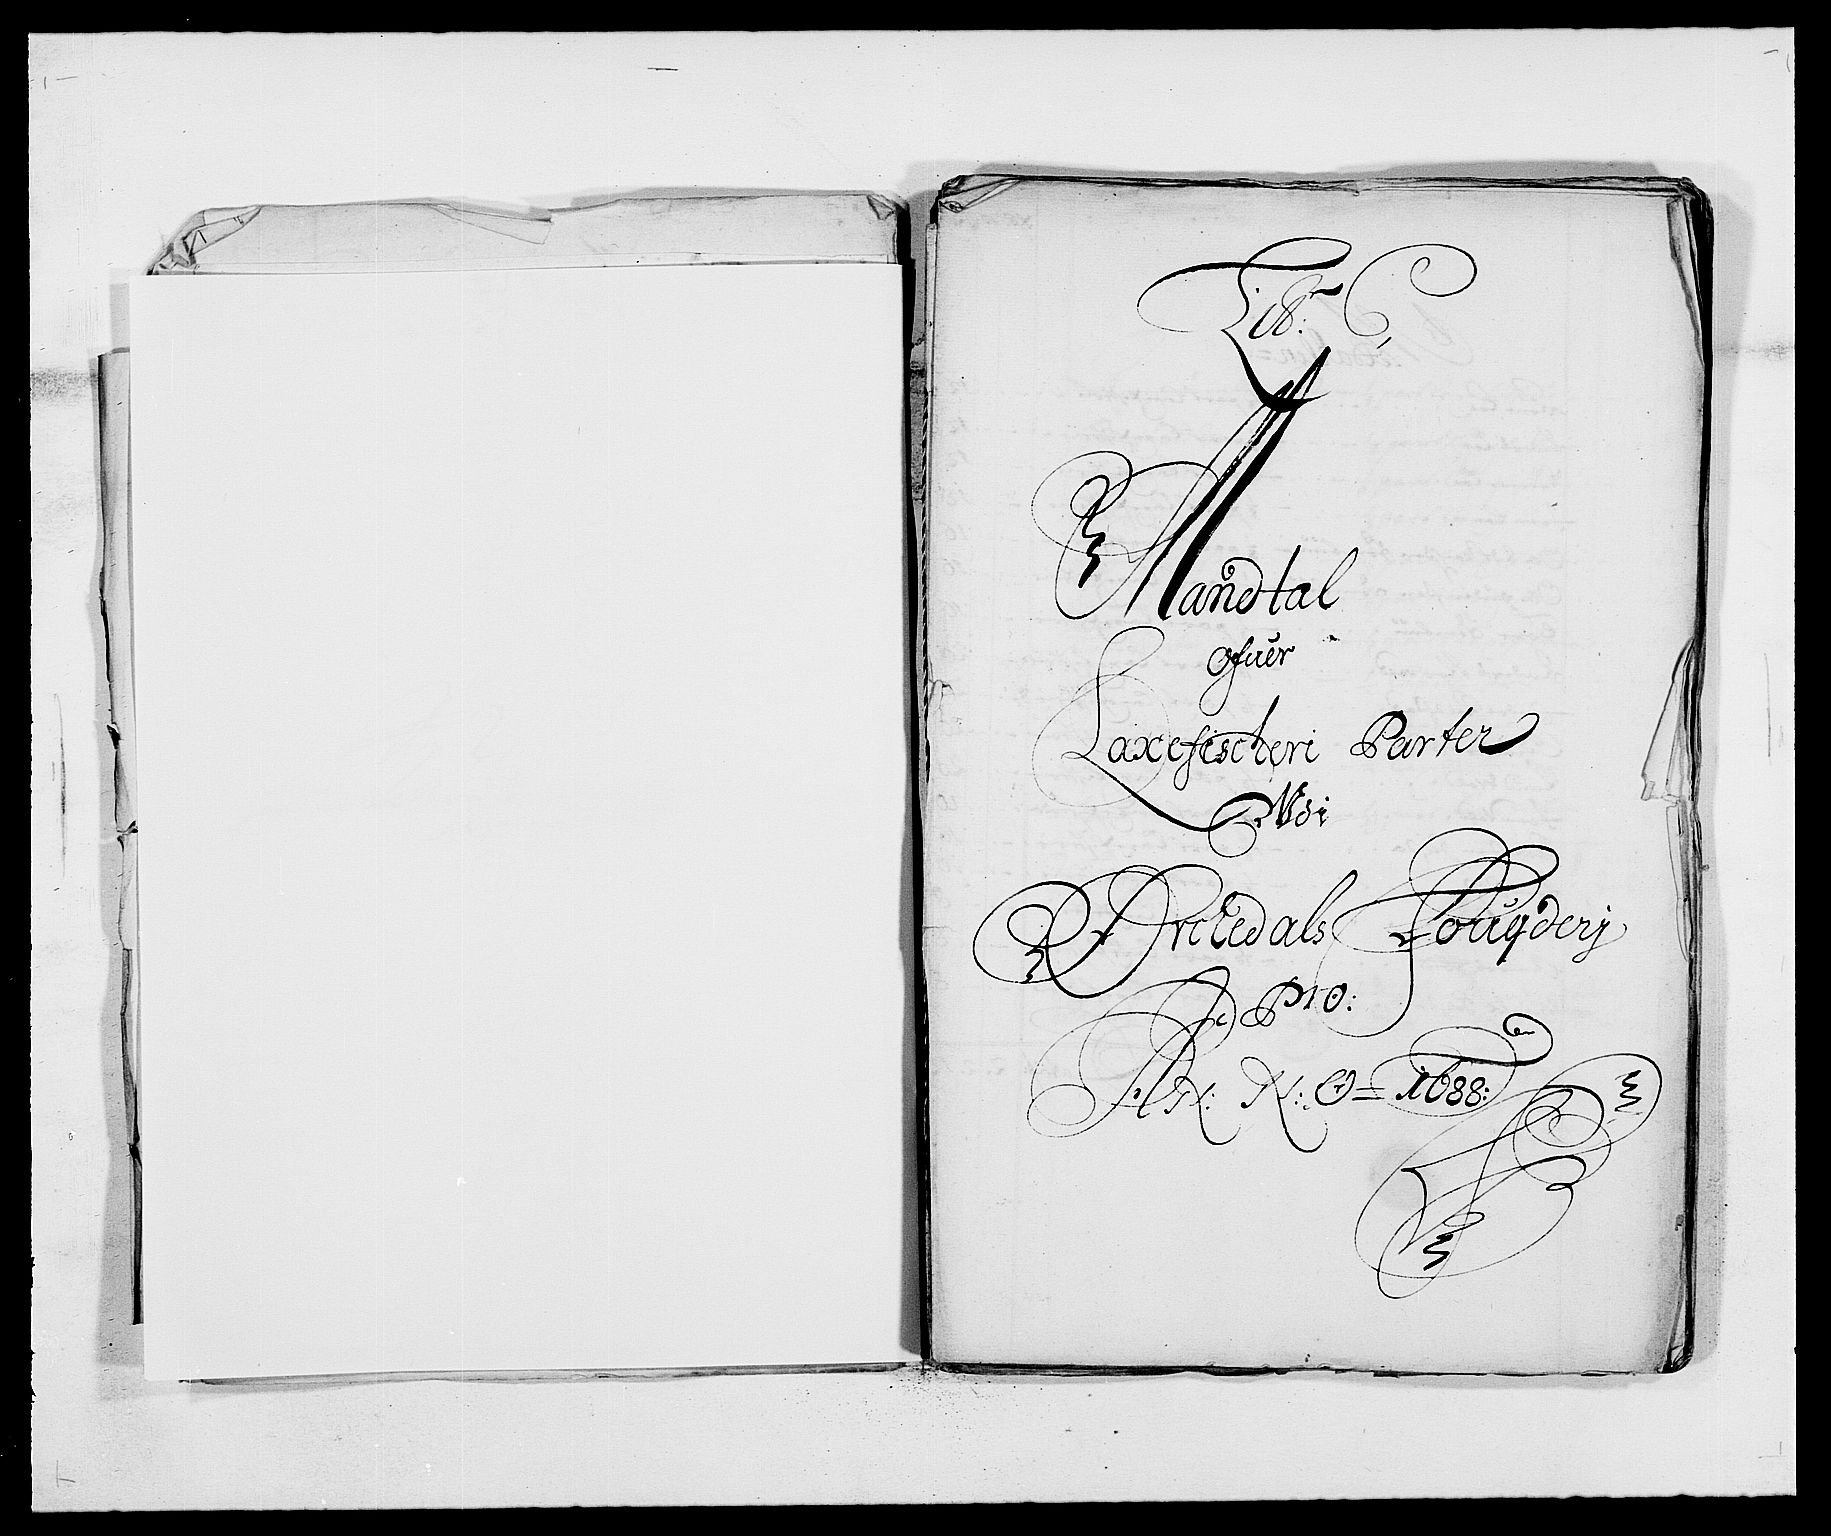 Lit: C,
Mandtal
ofuer
Laxefischeri Parter
Udi
Orckedals Fougderj
Pro:
A N: N: O= 1688: